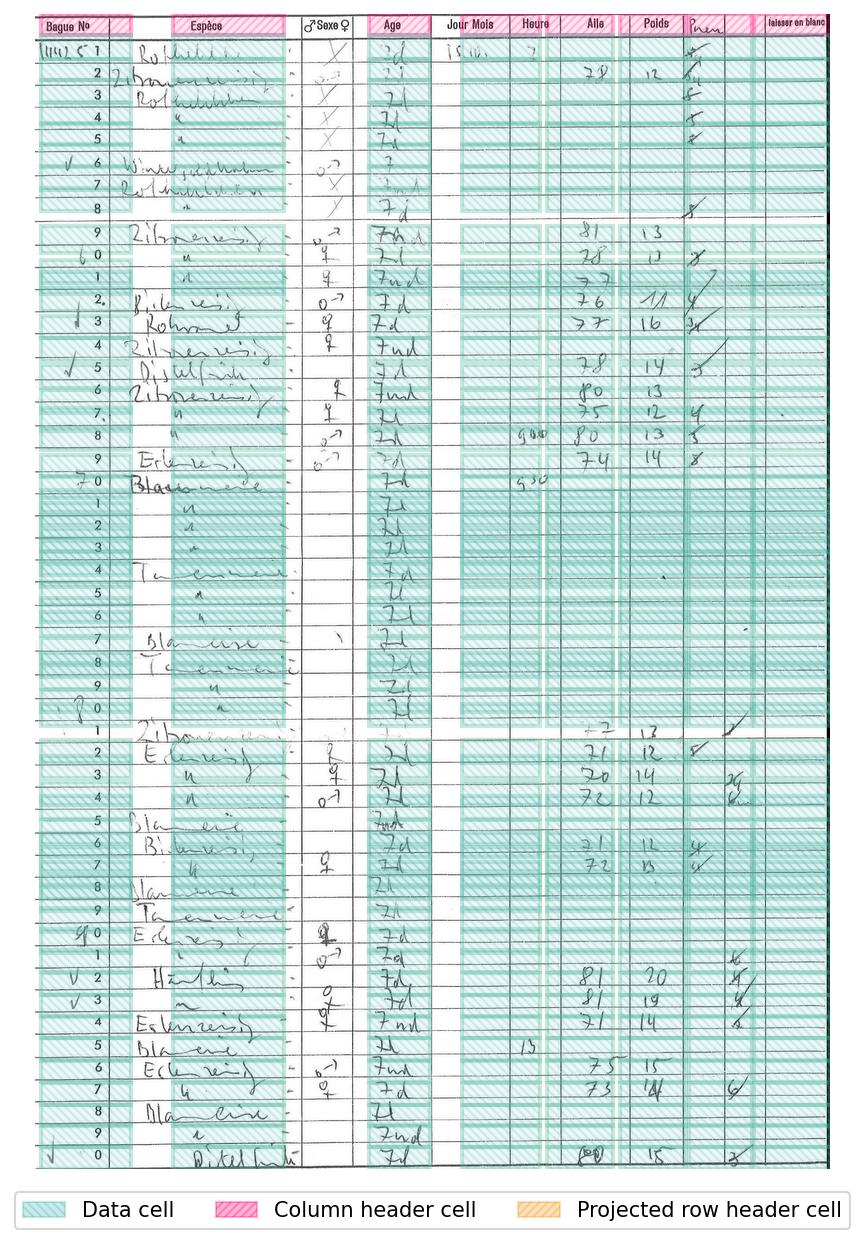 Bague Nº Espèce ♂ Sexe ♀ Age Jour Mois Heure Aile Poids Pneu laisser en blanc
1 Rotkehlchen X 15 10. 7
2 Zitronenzeisig 78 12
3 Rotkehlchen X 7d 8
4 " X 7d 5
5 " X 7d 8
6 Wintergoldhahn ♂ 7
7 Rotkehlchen X
8 " 7d 8
9 Zitronenzeisig ♂ 81 13
0 " ♀ 7d 78 13 8
1 " ♀ 7nd 77
2. Birkenzeisig ♂ 7d 76 11 4
3 Rohrammer ♀ 7d 77 16
4 Zitronenzeisig ♀ 7nd
5 Distelfink 7d 78 14 5
6 Zitronenzeisig ♀ 7nd 80 13
7. " ♀ 7d 75 12 4
8 " ♂ 7d 900 80 13 5
9 Erlenzeisig ♂ 7d 74 14 8
70 Blaumeise 7d 930
1 " 7d
2 " 7d
3 " 7d
4 Tannenmeise 7d
5 " 7d
6 " 7d
7 Blaumeise 7d
8 Tannenmeise 7d
9 " 7d
0 " 7d
1 Zitronenzeisig 77 13
2 Erlenzeisig ♀ 7d 71 12 8
3 " ♀ 7d 70 14
4 " ♂ 7d 72 12
5 Blaumeise 7nd
6 Birkenzeisig 7d 71 12 4
7 " ♀ 7d 72 13 4
8 Blaumeise 7d
9 Tannenmeise 7d
90 Erlenzeisig ♀ 7d
1 " ♂ 7d
2 Hänfling 7d 81 20 4
3 " ♀ 7d 81 19 4
4 Erlenzeisig ♀ 7nd 71 14
5 Blaumeise 7d 13
6 Erlenzeisig ♂ 7nd 75 15
7 " ♀ 7d 73 14 6
8 Blaumeise 7d
9 " 7nd
0 Distelfink 7d 80 15 3
Data cell Column header cell Projected row header cell